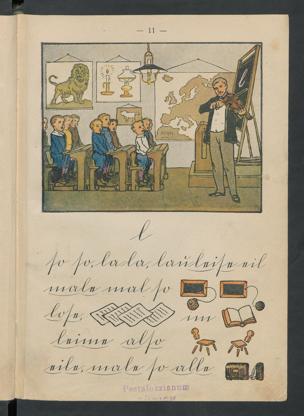 — 11 —
l
so so, la la, lau leise eil
male mal so
lose, im
leime also
eile, male so alle
Pestalozzianum
ZÜRICH